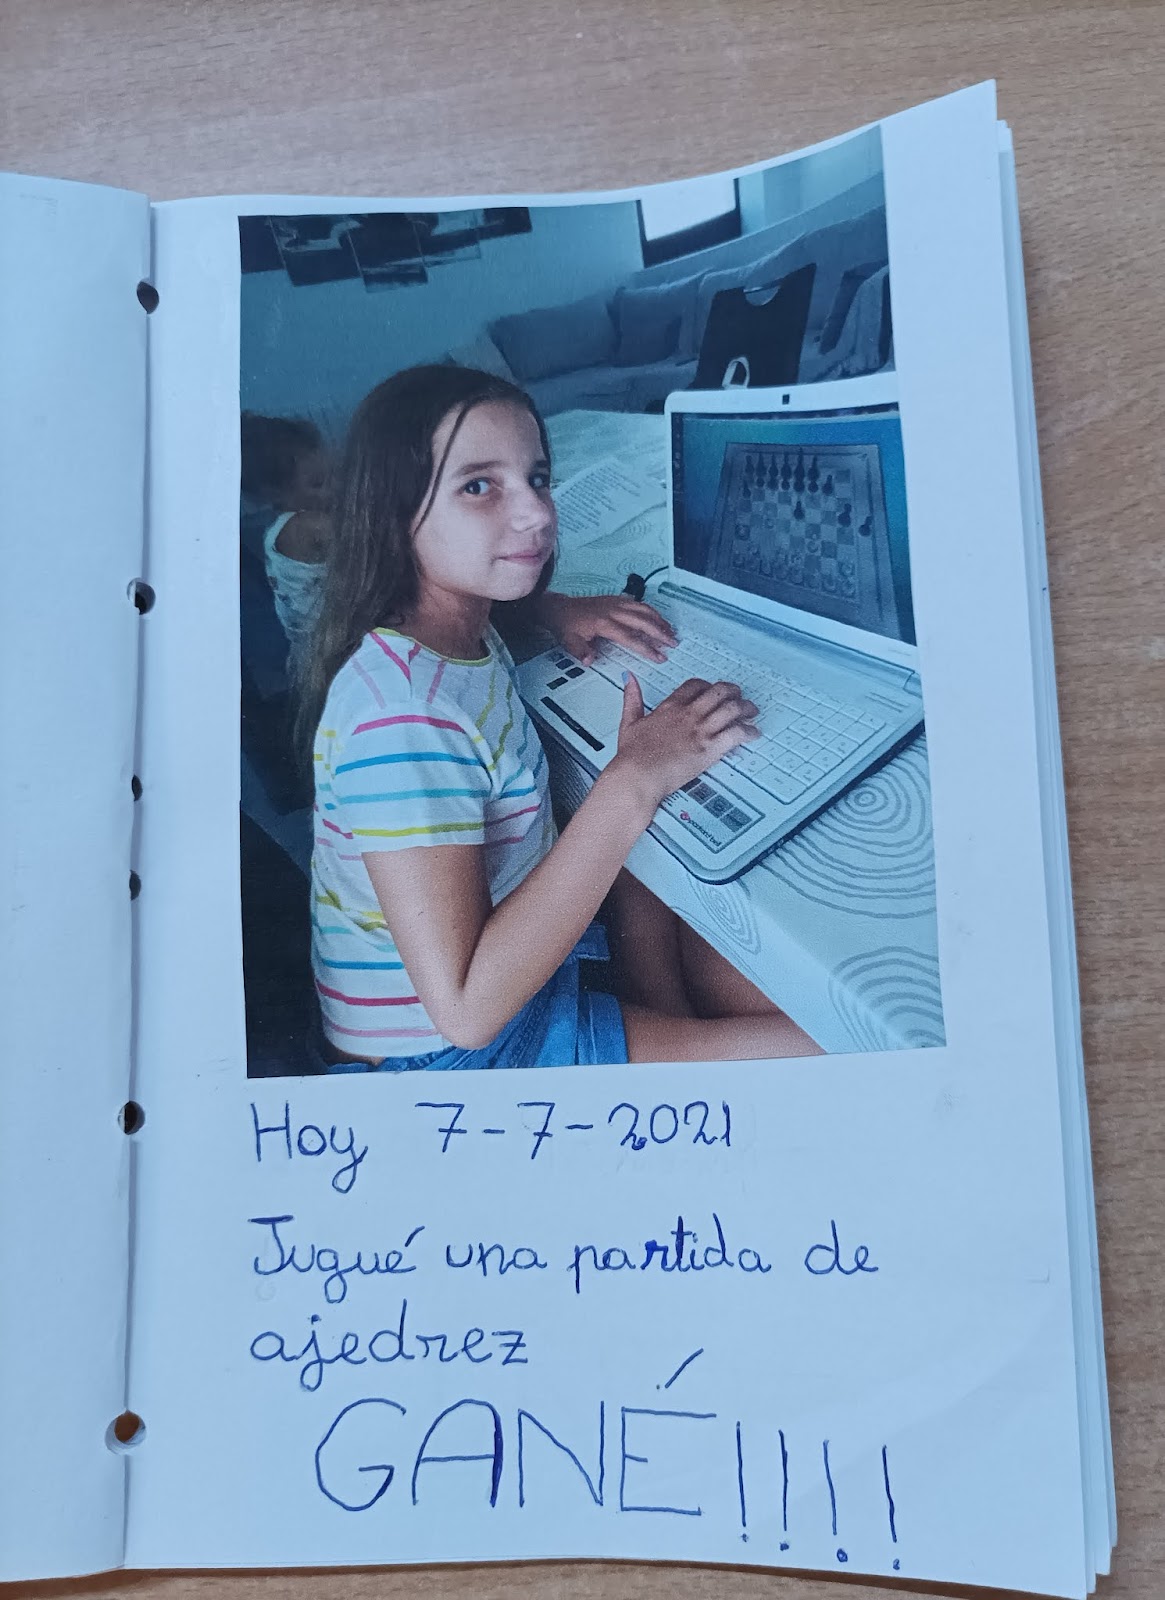 packard bell
Hoy 7-7-2021
Jugué una partida de
ajedrez
GANÉ!!!!